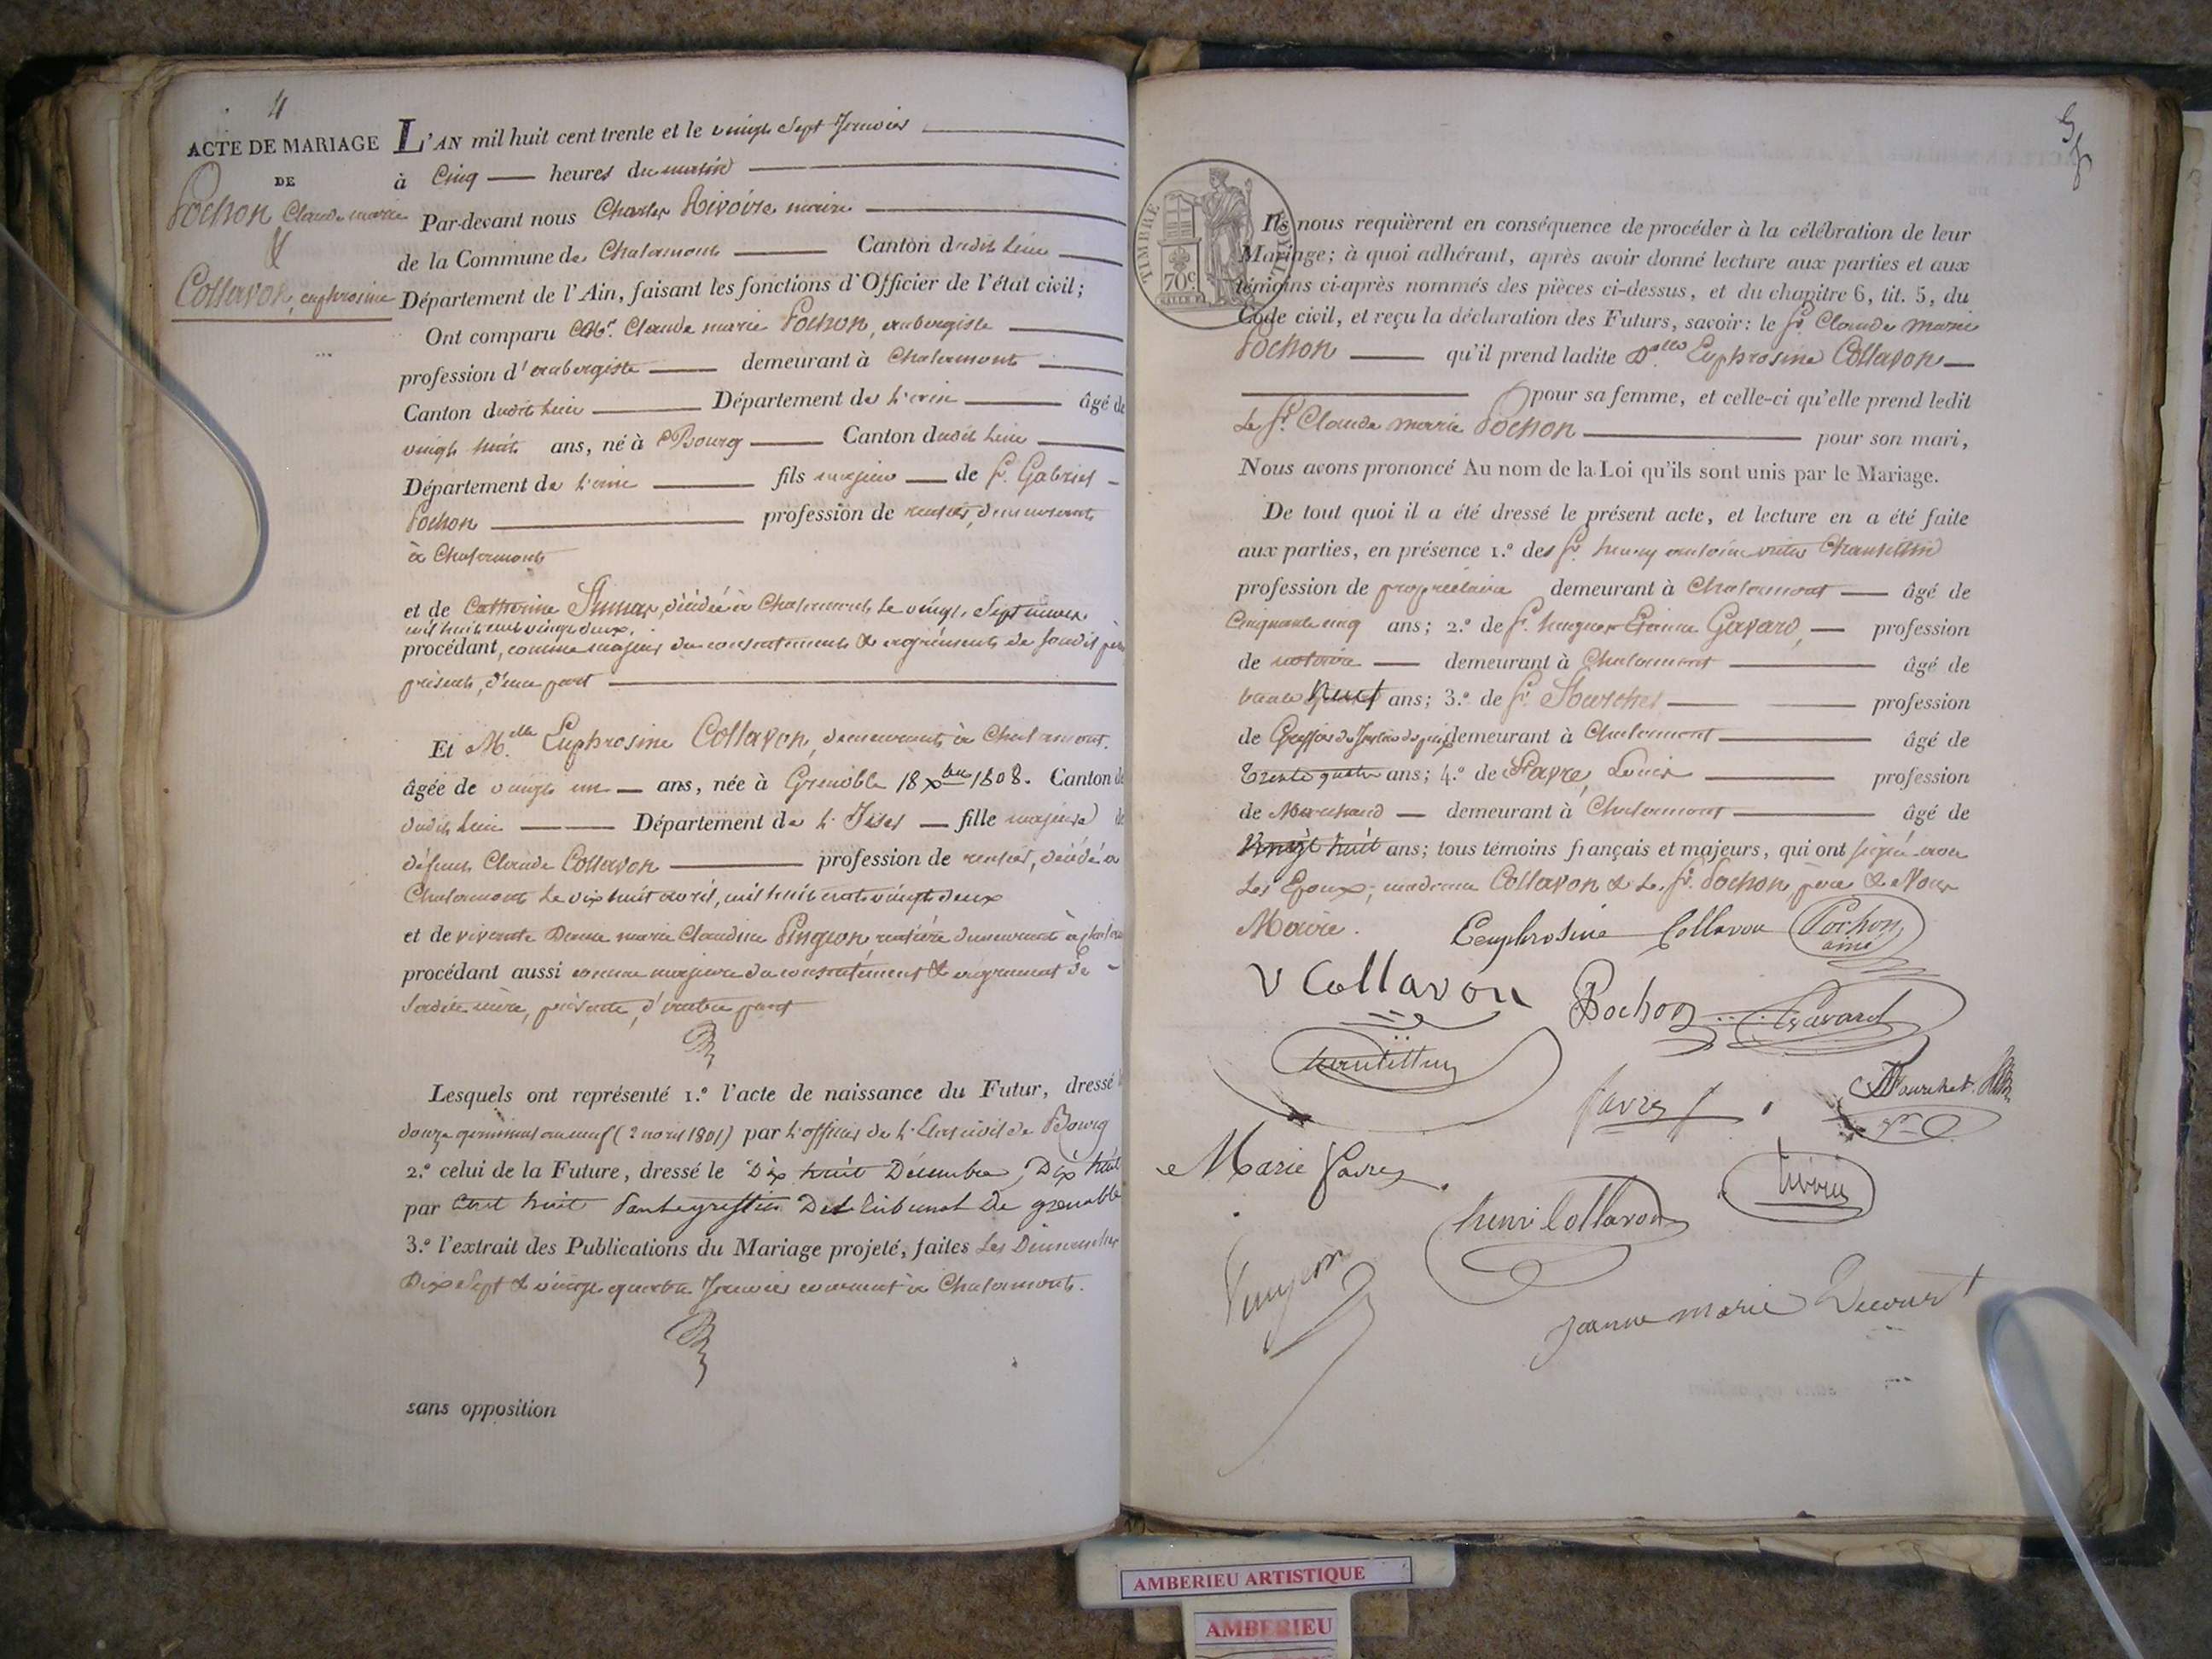 4
ACTE DE MARIAGE
DE
Pochon Claude marie
&
Collavon, euphrosine
L'AN mil huit cent trente et le vingt Sept Janvier
à Cinq heures du matin
Par-devant nous Charles Rivoire maire
de la Commune de Chalamont Canton dudit lieu
Département de l'Ain, faisant les fonctions d'Officier de l'état civil;
Ont comparu Mr. Claude marie Pochon, aubergiste
profession d'aubergiste demeurant à Chalamont
Canton dudit lieu Département de l'ain âgé de
vingt huit ans, né à Bourg Canton dudit lieu
Département de l'ain fils majeur de Sr. Gabriel
Pochon profession de rentier, demeurant
à Chalamont
et de Catherine décédée à Chalamont le vingt Sept
mil huit cent vingt deux,
procédant, comme majeur du consentement & agrément de sondit père
présent, d'une part
Et Melle Euphrosine Collavon, demeurant à Chalamont.
âgée de vingt un ans, née à Grenoble 18 xbre 1808. Canton
dudit lieu Département de l'Iser fille majeure de
défunt Claude Collavon profession de rentier, décédé à
Chalamont le dix huit avril, mil huit cent vingt deux
et de vivante Dame marie Claudine Pingeon, rentière demeurant à
procédant aussi comme majeure du consentement & agrément de
Sadite mère, présente, d'autre part
Lesquels ont représenté 1.º l'acte de naissance du Futur, dressé
douze germinal an neuf (2 avril 1801) par l'officier de l'Etat civil de Bourg
2.º celui de la Future, dressé le Dix huit Décembre, Dix huit
par Cent huit Du tribunal de grenoble
3.º l'extrait des Publications du Mariage projeté, faites les Dimanches
Dix Sept & vingt quatre Janvier courant à Chalamont.
sans opposition
5
TIMBRE ROYAL
70 C.
Ils nous requièrent en conséquence de procéder à la célébration de leur
Mariage; à quoi adhérant, après avoir donné lecture aux parties et aux
témoins ci-après nommés des pièces ci-dessus, et du chapitre 6, tit. 5, du
Code civil, et reçu la déclaration des Futurs, savoir: le Sr. Claude Marie
Pochon qu'il prend ladite Dlle Euphrosine Collavon
pour sa femme, et celle-ci qu'elle prend ledit
Le Sr. Claude marie Pochon pour son mari,
Nous avons prononcé Au nom de la Loi qu'ils sont unis par le Mariage.
De tout quoi il a été dressé le présent acte, et lecture en a été faite
aux parties, en présence 1.º des Sr. antoine
profession de propriétaire demeurant à Chalamont âgé de
Cinquante cinq ans; 2.º de Sr. Etienne Gavard, profession
de notaire demeurant à Chalamont âgé de
trente Neuf ans; 3.º de Sr. profession
de Greffier de Justice de paix demeurant à Chalamont âgé de
Trente quatre ans; 4.º de Favre, Louis profession
de Marchand demeurant à Chalamont âgé de
Vingt huit ans; tous témoins français et majeurs, qui ont signé avec
Les Epoux, madame Collavon & Le Sr. Pochon, père & Nous
Maire.
Euphrosine Collavon
Pochon
ainé
V Collavon
Pochon
Gavard
favre
Marie favre
henri Collavon
Jeanne marie Decourt
AMBERIEU ARTISTIQUE
AMBERIEU